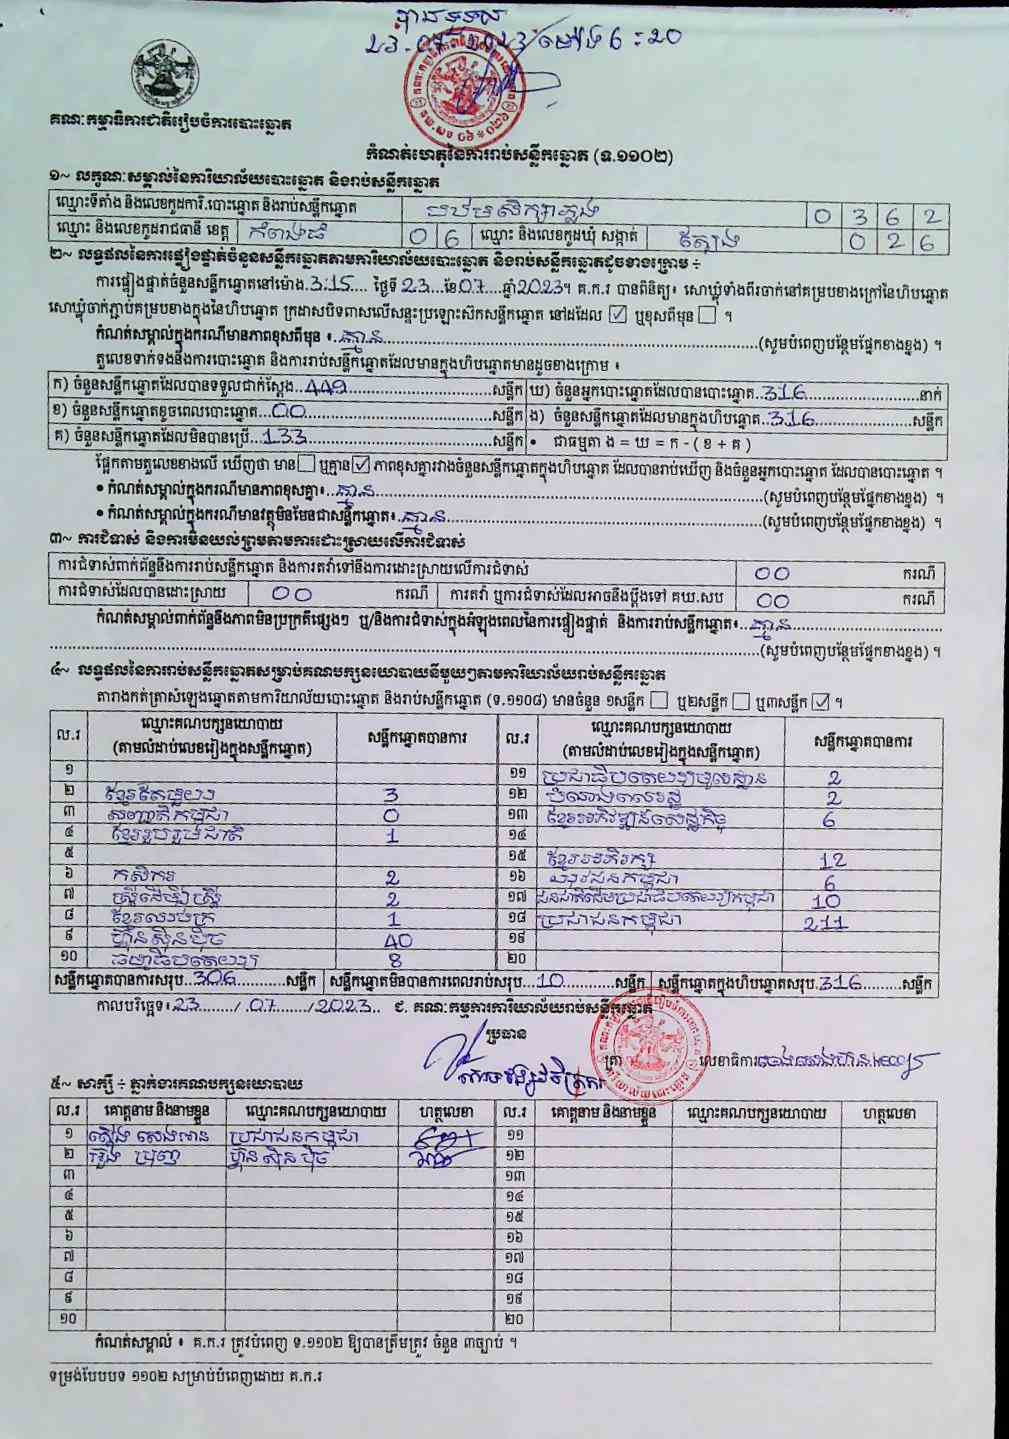 បានទទួល
23.07.2023/ម៉ោង 6:20
គណៈកម្មាធិការជាតិរៀបចំការបោះឆ្នោត
កំណត់ហេតុនៃការរាប់សន្លឹកឆ្នោត (ទ.១១០២)
១~ លក្ខណៈសម្គាល់នៃការិយាល័យបោះឆ្នោត និងរាប់សន្លឹកឆ្នោត
ឈ្មោះទីតាំង និងលេខកូដការិ.បោះឆ្នោត និងរាប់សន្លឹកឆ្នោត បឋមសិក្សាភ្លូង 0 3 6 2
ឈ្មោះ និងលេខកូដរាជធានី ខេត្ត កំពង់ធំ 0 6 ឈ្មោះ និងលេខកូដឃុំ សង្កាត់ ត្បែង 0 2 6
២~ លទ្ធផលនៃការផ្ទៀងផ្ទាត់ចំនួនសន្លឹកឆ្នោតតាមការិយាល័យបោះឆ្នោត និងរាប់សន្លឹកឆ្នោតដូចខាងក្រោម ÷
ការផ្ទៀងផ្ទាត់ចំនួនសន្លឹកឆ្នោតនៅម៉ោង.3:15.... ថ្ងៃទី 23...ខែ07....ឆ្នាំ2023។ គ.ក.រ បានពិនិត្យ៖ សោឃ្លុំទាំងពីរចាក់នៅគម្របខាងក្រៅនៃហិបឆ្នោត
សោឃ្លុំចាក់ភ្ជាប់គម្របខាងក្នុងនៃហិបឆ្នោត ក្រដាសបិទពាសលើសន្ទះប្រឡោះស៊កសន្លឹកឆ្នោត នៅដដែល ☑ ឬខុសពីមុន ☐ ។
កំណត់សម្គាល់ក្នុងករណីមានភាពខុសពីមុន ៖..គ្មាន......(សូមបំពេញបន្ថែមផ្នែកខាងខ្នង) ។
តួលេខទាក់ទងនឹងការបោះឆ្នោត និងការរាប់សន្លឹកឆ្នោតដែលមានក្នុងហិបឆ្នោតមានដូចខាងក្រោម ៖
ក) ចំនួនសន្លឹកឆ្នោតដែលបានទទួលជាក់ស្តែង..449......សន្លឹក ឃ) ចំនួនអ្នកបោះឆ្នោតដែលបានបោះឆ្នោត..316......នាក់
ខ) ចំនួនសន្លឹកឆ្នោតខូចពេលបោះឆ្នោត...00......សន្លឹក ង) ចំនួនសន្លឹកឆ្នោតដែលមានក្នុងហិបឆ្នោត..316......សន្លឹក
គ) ចំនួនសន្លឹកឆ្នោតដែលមិនបានប្រើ...133......សន្លឹក • ជាធម្មតា ង = ឃ = ក - ( ខ + គ )
ផ្អែកតាមតួលេខខាងលើ ឃើញថា មាន ☐ ឬគ្មាន ☑ ភាពខុសគ្នារវាងចំនួនសន្លឹកឆ្នោតក្នុងហិបឆ្នោត ដែលបានរាប់ឃើញ និងចំនួនអ្នកបោះឆ្នោត ដែលបានបោះឆ្នោត ។
• កំណត់សម្គាល់ក្នុងករណីមានភាពខុសគ្នា៖..គ្មាន......(សូមបំពេញបន្ថែមផ្នែកខាងខ្នង) ។
• កំណត់សម្គាល់ក្នុងករណីមានវត្ថុមិនមែនជាសន្លឹកឆ្នោត៖..គ្មាន......(សូមបំពេញបន្ថែមផ្នែកខាងខ្នង) ។
៣~ ការជំទាស់ និងការមិនយល់ព្រមតាមការដោះស្រាយលើការជំទាស់
ការជំទាស់ពាក់ព័ន្ធនឹងការរាប់សន្លឹកឆ្នោត និងការតវ៉ាទៅនឹងការដោះស្រាយលើការជំទាស់ 00 ករណី
ការជំទាស់ដែលបានដោះស្រាយ 00 ករណី ការតវ៉ា ឬការជំទាស់ដែលអាចនឹងប្តឹងទៅ គឃ.សប 00 ករណី
កំណត់សម្គាល់ពាក់ព័ន្ធនឹងភាពមិនប្រក្រតីផ្សេងៗ ឬ/និងការជំទាស់ក្នុងអំឡុងពេលនៃការផ្ទៀងផ្ទាត់ និងការរាប់សន្លឹកឆ្នោត៖..គ្មាន......
......(សូមបំពេញបន្ថែមផ្នែកខាងខ្នង) ។
៤~ លទ្ធផលនៃការរាប់សន្លឹកឆ្នោតសម្រាប់គណបក្សនយោបាយនីមួយៗតាមការិយាល័យរាប់សន្លឹកឆ្នោត
តារាងកត់ត្រាសំឡេងឆ្នោតតាមការិយាល័យបោះឆ្នោត និងរាប់សន្លឹកឆ្នោត (ទ.១១០៨) មានចំនួន ១សន្លឹក ☐ ឬ២សន្លឹក ☐ ឬ៣សន្លឹក ☑ ។
ល.រ ឈ្មោះគណបក្សនយោបាយ (តាមលំដាប់លេខរៀងក្នុងសន្លឹកឆ្នោត) សន្លឹកឆ្នោតបានការ ល.រ ឈ្មោះគណបក្សនយោបាយ (តាមលំដាប់លេខរៀងក្នុងសន្លឹកឆ្នោត) សន្លឹកឆ្នោតបានការ
១ ១១ ប្រជាធិបតេយ្យមូលដ្ឋាន 2
២ ខ្មែរតែមួយ 3 ១២ បំណងពលរដ្ឋ 2
៣ សញ្ជាតិកម្ពុជា 0 ១៣ ខ្មែរអភិវឌ្ឍន៍សេដ្ឋកិច្ច 6
៤ ខ្មែររួបរួមជាតិ 1 ១៤
៥ ១៥ ខ្មែរអភិរក្ស 12
៦ កសិករ 2 ១៦ យុវជនកម្ពុជា 6
៧ ស្ត្រីដើម្បីស្ត្រី 2 ១៧ ជនជាតិដើមប្រជាធិបតេយ្យកម្ពុជា 10
៨ ខ្មែរឈប់ក្រ 1 ១៨ ប្រជាជនកម្ពុជា 211
៩ ហ្វ៊ុនស៊ិនប៉ិច 40 ១៩
១០ ធម្មាធិបតេយ្យ 8 ២០
សន្លឹកឆ្នោតបានការសរុប..306......សន្លឹក សន្លឹកឆ្នោតមិនបានការពេលរាប់សរុប...10......សន្លឹក សន្លឹកឆ្នោតក្នុងហិបឆ្នោតសរុប.316......សន្លឹក
កាលបរិច្ឆេទ៖.23....../.07....../2023.. ជ. គណៈកម្មការការិយាល័យរាប់សន្លឹកឆ្នោត
ប្រធាន
ត្រា លេខាធិការ
៥~ សាក្សី ÷ ភ្នាក់ងារគណបក្សនយោបាយ
ល.រ គោត្តនាម និងនាមខ្លួន ឈ្មោះគណបក្សនយោបាយ ហត្ថលេខា ល.រ គោត្តនាម និងនាមខ្លួន ឈ្មោះគណបក្សនយោបាយ ហត្ថលេខា
១ ប្រជាជនកម្ពុជា ១១
២ ហ្វ៊ុនស៊ិនប៉ិច ១២
៣ ១៣
៤ ១៤
៥ ១៥
៦ ១៦
៧ ១៧
៨ ១៨
៩ ១៩
១០ ២០
កំណត់សម្គាល់ ៖ គ.ក.រ ត្រូវបំពេញ ទ.១១០២ ឱ្យបានត្រឹមត្រូវ ចំនួន ៣ច្បាប់ ។
ទម្រង់បែបបទ ១១០២ សម្រាប់បំពេញដោយ គ.ក.រ